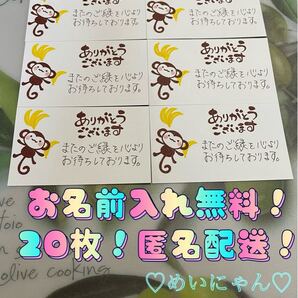 またのご縁を心より
お待ちしております。
またのご縁を心より
お待ちしております。
ありがとう
ございます
またのご縁を心より
お待ちしております。
ありがとう
ございます
またのご縁を心より
お待ちしております。
ありがとう
ございます
またのご縁を心より
お待ちしております。
ありがとう
ございます
またのご縁を心より
お待ちしております。
お名前入れ無料！
20枚！匿名配送！
olive cooking
♡めいにゃん♡